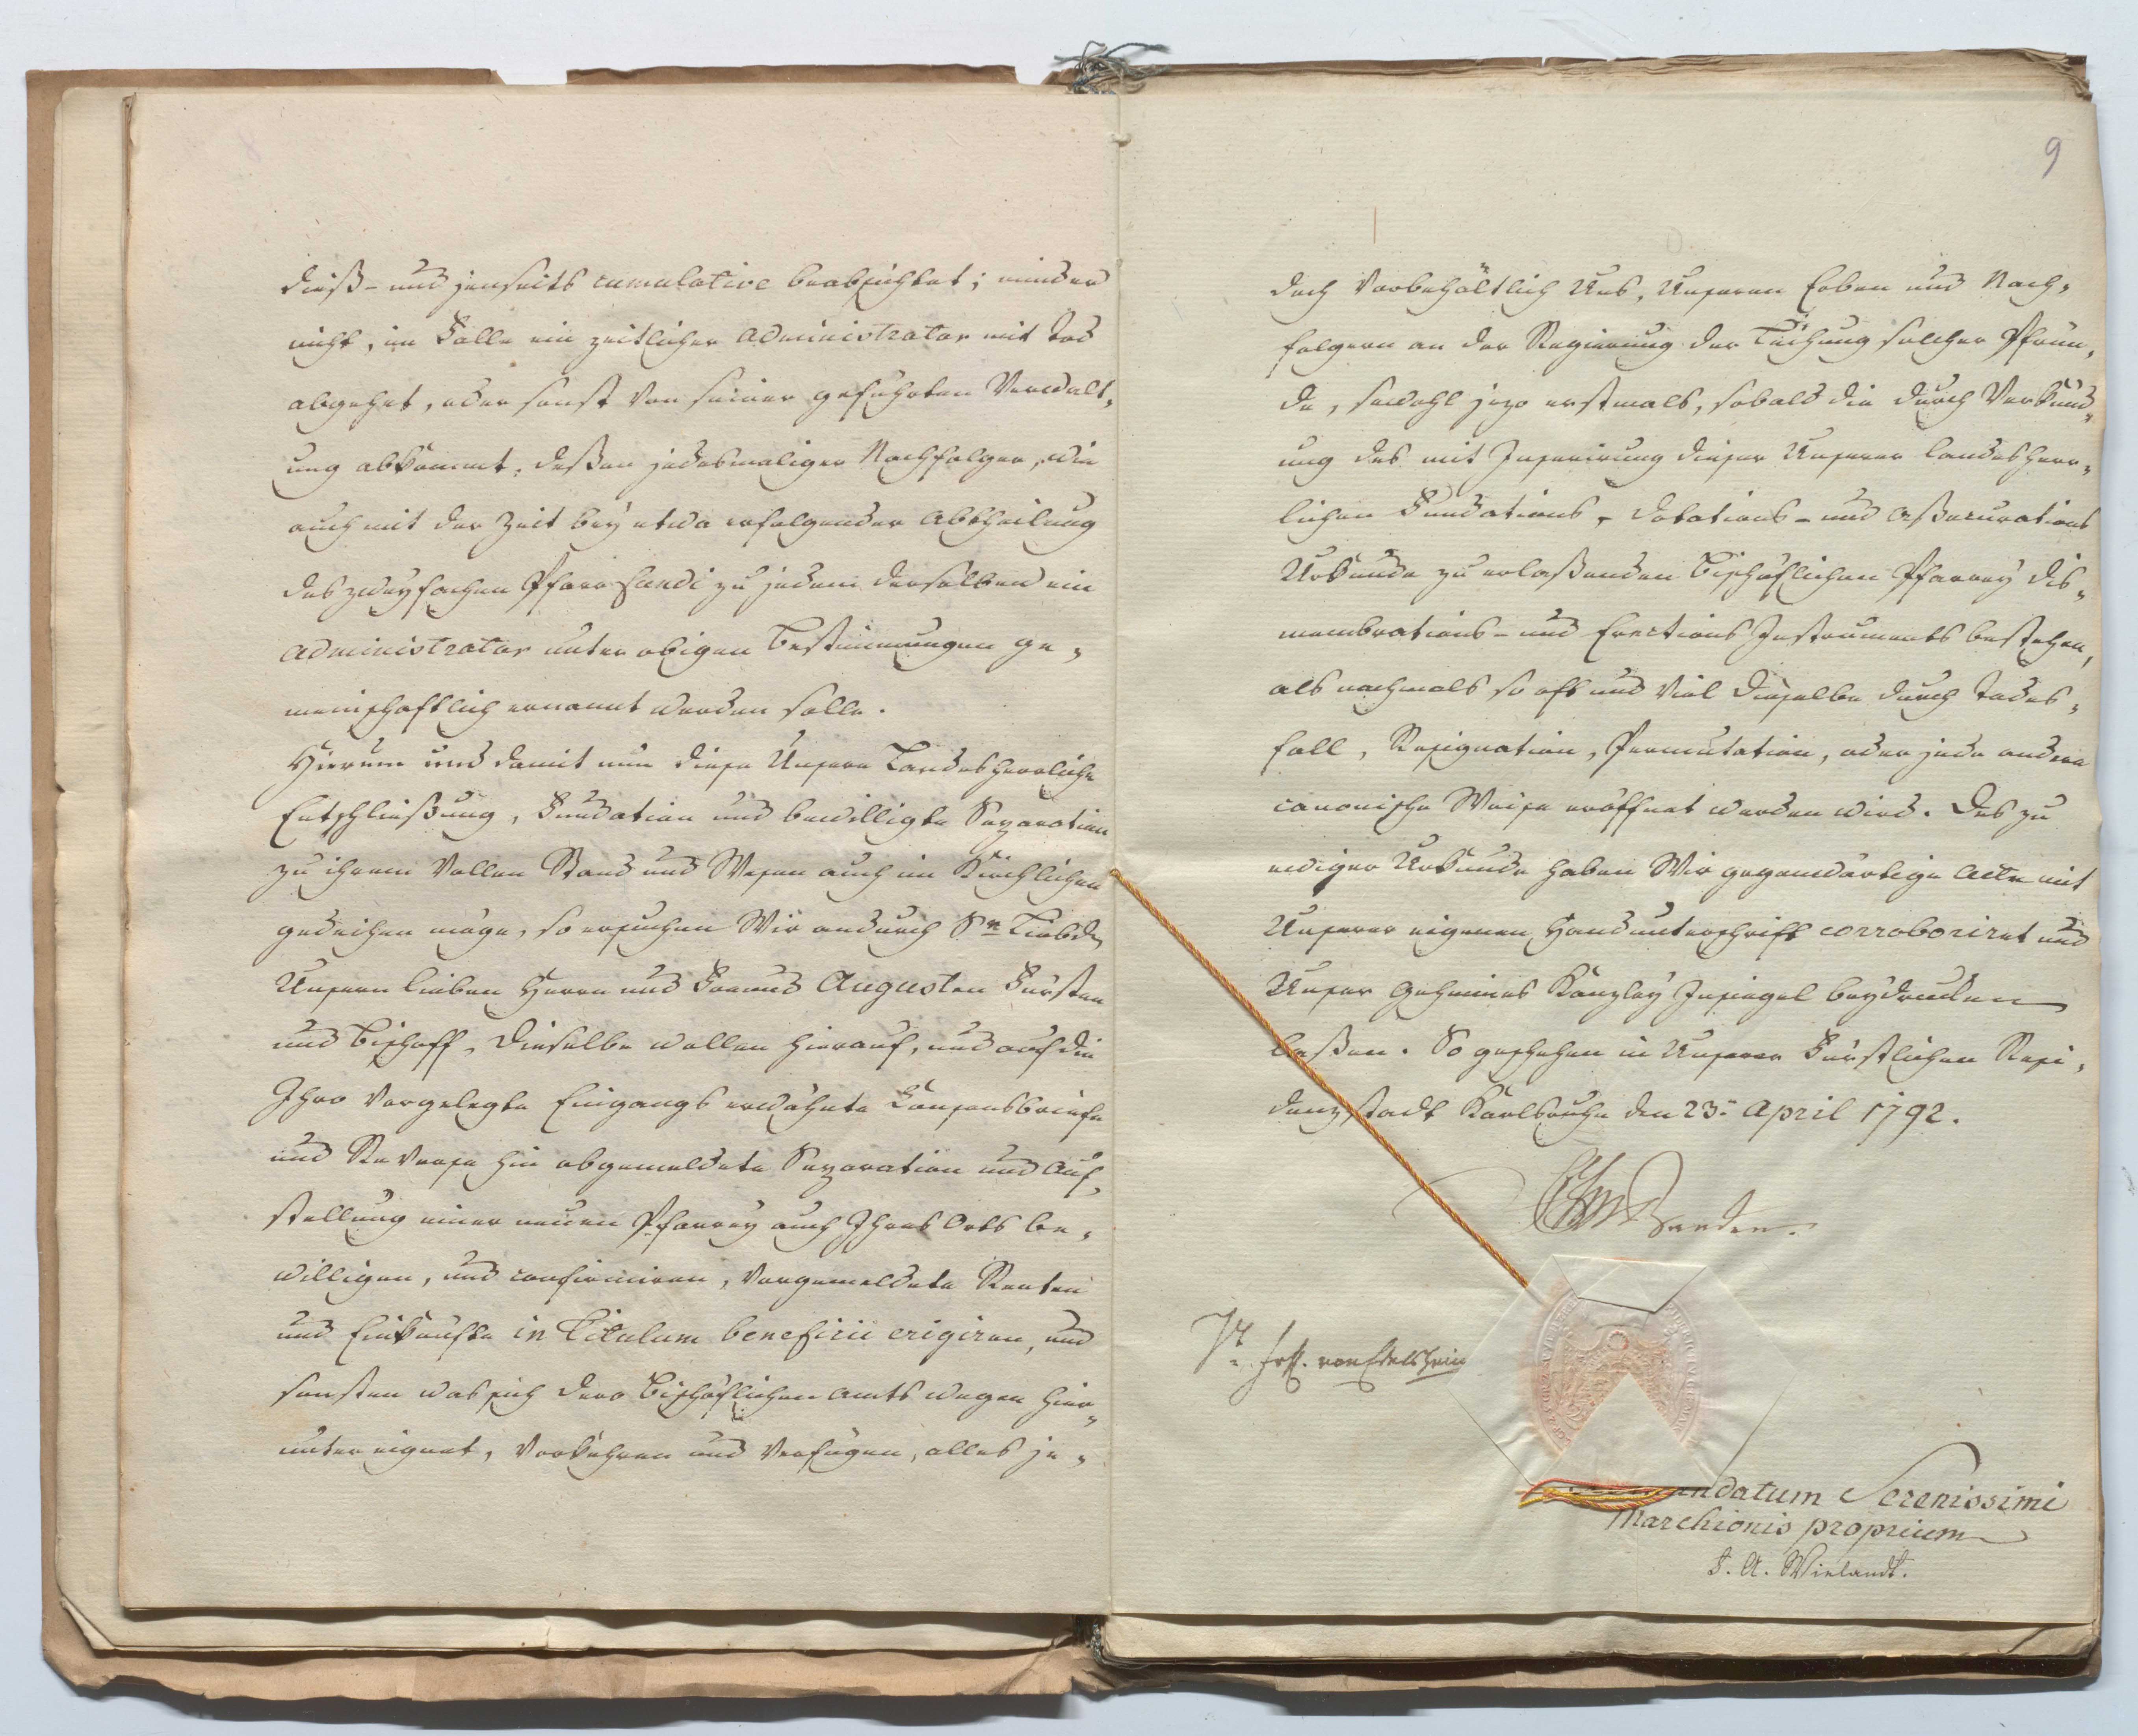 dieß- und jenseits cumulative beabsichtet; minder
nicht, im Falle ein zeitlicher Administrator mit Tod
abgehet, oder sonst von seiner geführten Verwalt-
ung abkommt, deßen jedesmaliger Nachfolger, wie
auch mit der Zeit bey etwa erfolgender Abtheilung
des zweyfachen Pfarrfundi zu jedem derselben ein
Administrator unter obigen Bestimmungen ge-
meinschaftlich ernannt werden solle.
Hierum und damit nun diese Unsere Landesherrliche
Entschließung, Fundation und bewilligte Separation
zu ihrem vollen Stand und Wesen auch im Kirchlichen
gedeihen möge, so ersuchen Wir andurch Sr. Liebden
Unsern lieben Herrn und Freund Augusten Fürsten
und Bischoff, Dieselbe wollen hierauf, und auf die
Ihro vorgelegte Eingangs erwähnte Consensbriefe
und Reverse hin obgemeldete Separation und Auf-
stellung einer neuen Pfarrey auch Ihres Orts be-
willigen, und confirmiren, vorgemeldete Renten
und Einkünfte in Titulum beneficii erigiren, und
sonsten was sich dero Bischöflichen Amts wegen hier-
unter eignet, vorkehren und verfügen, alles je-
9
doch vorbehältlich Uns, Unseren Erben und Nach-
folgern an der Regierung der Leihung solcher Pfrün-
de, sowohl jezo erstmals, sobald die durch Verkünd-
ung des mit Inserirung dieser Unserer Landesherr-
lichen Fundations-, Dotations- und Aßecurations
Urkunde zu erlaßenden Bischöflichen Pfarrey Dis-
membrations- und Erections Instruments bestehen,
als nachmals so oft und viel dieselbe durch Todes-
fall, Resignation, Permutation, oder jede andere
canonische Weise eröffnet werden wird. Des zu
ewiger Urkunde haben Wir gegenwärtige Acte mit
Unserer eigenen Handunterschrift corroboriret und
Unser Geheimes Kanzley Insiegel beydrucken
laßen. So geschehen in Unserer Fürstlichen Resi-
denzstadt Karlsruhe den 23. April 1792.
CFMvBaaden.
Vt. Frh. von Edelsheim
ndatum Serenissimi
Marchionis proprium
F. A. Wielandt.